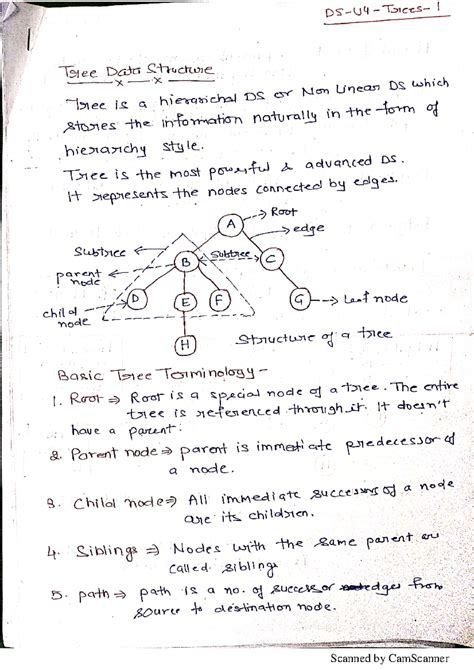 DS-U4-Trees-1
Tree Data Structure
Tree is a hierarichal DS or Non Linear DS which
stores the information naturally in the form of
hierarchy style.
Tree is the most powerful & advanced DS.
It represents the nodes connected by edges.
A
Root
edge
Subtree
B
Subtree
C
parent
node
child
node
D
E
F
G
Leaf node
H
Structure of a tree
Basic Tree Terminology -
1. Root ⇒ Root is a special node of a tree. The entire
tree is referenced through it. It doesn't
have a parent.
2. Parent node ⇒ parent is immediate predecessor of
a node.
3. Child node ⇒ All immediate successors of a node
are its children.
4. Siblings ⇒ Nodes with the same parent are
called siblings
5. path ⇒ path is a no. of successor edges from
source to destination node.
Scanned by CamScanner